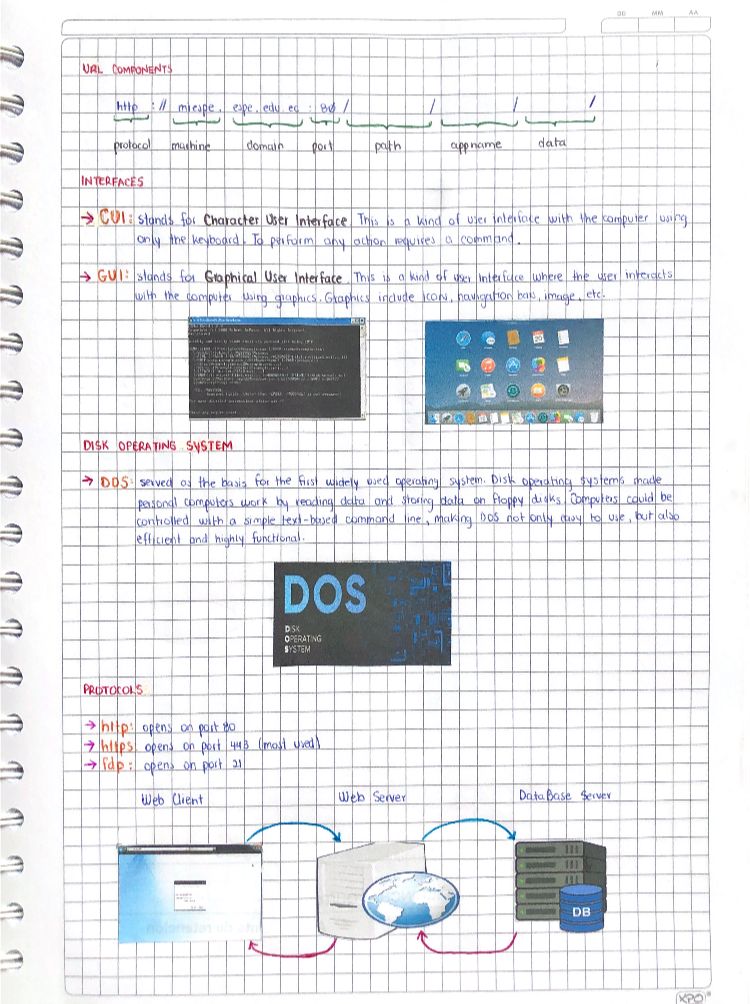 DD MM AA
URL COMPONENTS
http :// miespe. espe.edu.ec : 80 / / / /
protocol machine domain port path appname data
INTERFACES
→ CUI: stands for Character User Interface. This is a kind of user interface with the computer using
only the keyboard. To perform any action requires a command.
→ GUI: stands for Graphical User Interface. This is a kind of user interface where the user interacts
with the computer using graphics. Graphics include icons, navigation bars, image, etc.
DISK OPERATING SYSTEM
→ DOS: served as the basis for the first widely used operating system. Disk operating systems made
personal computers work by reading data and storing data on floppy disks. Computers could be
controlled with a simple text-based command line, making DOS not only easy to use, but also
efficient and highly functional.
DOS
DISK
OPERATING
SYSTEM
PROTOCOLS
→ http: opens on port 80
→ https: opens on port 443 (most used)
→ fdp: opens on port 21
Web Client Web Server DataBase Server
DB
XPO